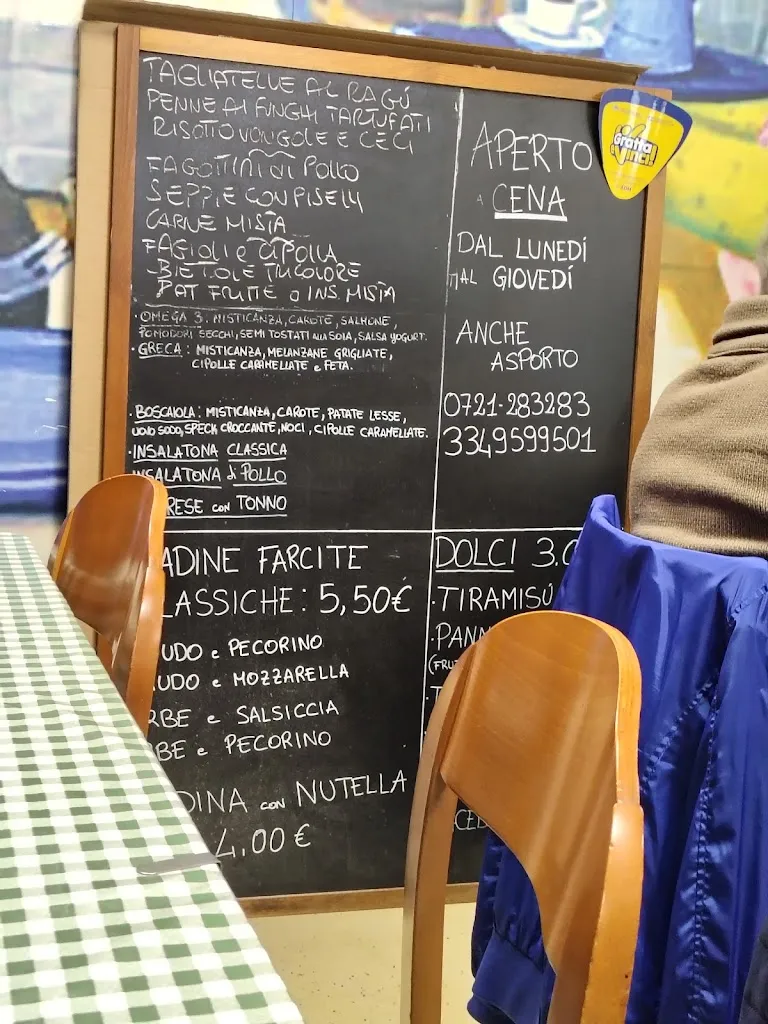 TAGLIATELLE AL RAGÚ
PENNE AI FUNGHI TARTUFATI
RISOTTO VONGOLE E CECI
FAGOTTINI di POLLO
SEPPIE CON PISELLI
CARNE MISTA
FAGIOLI e CIPOLLA
BIETOLE TRICOLORE
PAT FRITTE o INS. MISTA
· OMEGA 3: MISTICANZA, CAROTE, SALMONE,
POMODORI SECCHI, SEMI TOSTATI alla SOIA, SALSA YOGURT.
· GRECA: MISTICANZA, MELANZANE GRIGLIATE,
CIPOLLE CARAMELLATE e FETA.
· BOSCAIOLA: MISTICANZA, CAROTE, PATATE LESSE,
UOVO SODO, SPECK CROCCANTE, NOCI, CIPOLLE CARAMELLATE.
· INSALATONA CLASSICA
INSALATONA di POLLO
RESE con TONNO
APERTO
CENA
DAL LUNEDÍ
AL GIOVEDÍ
ANCHE
ASPORTO
0721-283283
3349599501
Gratta
e Vinci!
ADINE FARCITE
LASSICHE: 5,50€
UDO e PECORINO
UDO e MOZZARELLA
RBE e SALSICCIA
BE e PECORINO
DINA con NUTELLA
4,00 €
DOLCI 3.0
· TIRAMISÚ
· PANN
(FRU